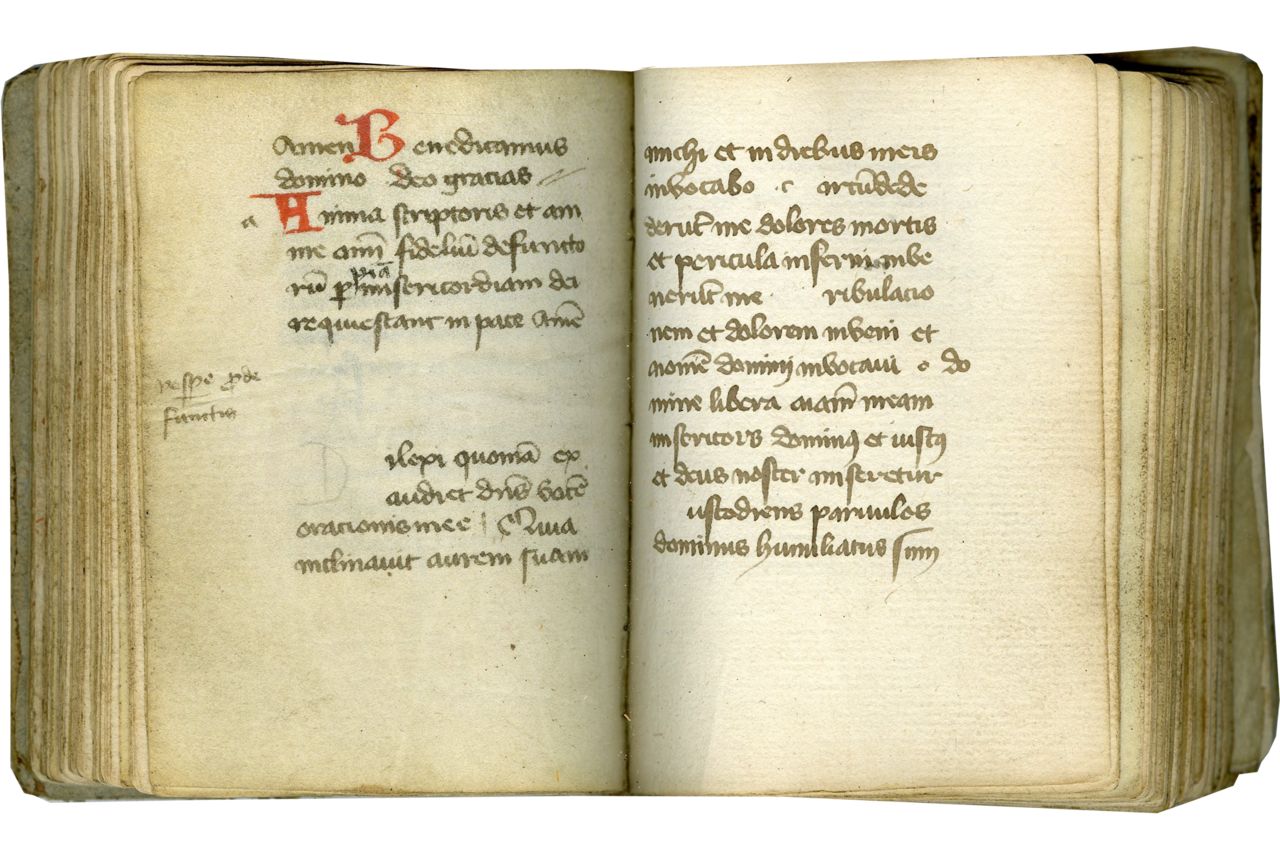 Amen Benedicamus
domino deo gracias
a
Anima scriptoris et am
me am̄ fideliū defuncto
rū p piā misericordiam dei
requiescant in pace Amē
vespe p̱ de
functis
D ilexi quoniā ex
audiet dn̄s vocē
oracionis mee Quia
inclinavit aurem suam
michi et in diebus meis
invocabo c ircūdede
derūt me dolores mortis
et pericula inferni inve
nerūt me ribulacio
nem et dolorem inveni et
nomē domini invocavi o do
mine libera aīam meam
misericors dominꝰ et iustꝰ
et deus noster miseretur
ustodiens parvulos
dominus humiliatus sum